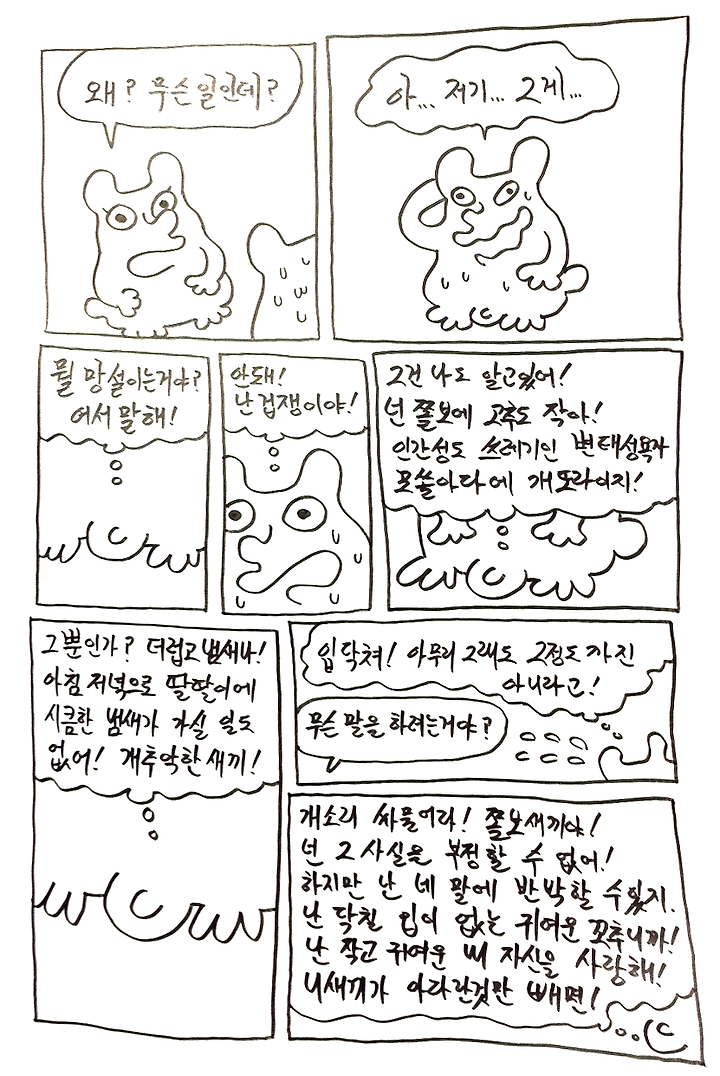 왜? 무슨일인데?
아... 저기... 그게...
뭘 망설이는거야?
어서 말해!
안돼!
난 겁쟁이야!
그건 나도 알고있어!
넌 쫄보에 고추도 작아!
인간성도 쓰레기인 변태성욕자
모쏠아다에 개또라이지!
그뿐인가? 더럽고 냄새나!
아침 저녁으로 딸딸이에
시큼한 냄새가 가실 일도
없어! 개추악한 새끼!
입닥쳐! 아무리 그래도 그정도까진
아니라고!
무슨 말을 하려는거야?
개소리 싸물어라! 쫄보새끼야!
넌 그 사실을 부정할 수 없어!
하지만 난 네 말에 반박할 수있지.
난 닥칠 입이 없는 귀여운 꼬추니까!
난 작고 귀여운 내 자신을 사랑해!
니새끼가 아다란것만 빼면!